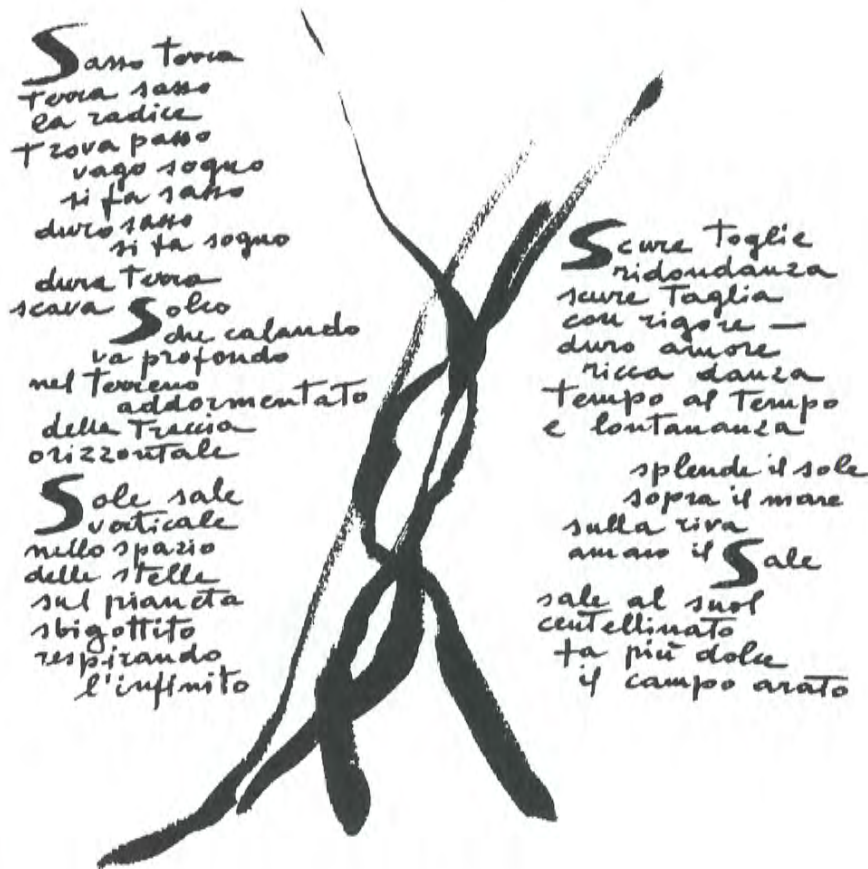 Sasso terra
terra sasso
la radice
trova passo
vago sogno
si fa sasso
duro sasso
si fa sogno
dura terra
scava Solco
che calando
va profondo
nel terreno
addormentato
della treccia
orizzontale
Sole sale
verticale
nello spazio
delle stelle
sul pianeta
sbigottito
respirando
l'infinito
Scure toglie
ridondanza
scure taglia
con rigore —
duro amore
ricca danza
tempo al tempo
e lontananza
splende il sole
sopra il mare
sulla riva
amaro il Sale
sale al suol
centellinato
fa più dolce
il campo arato